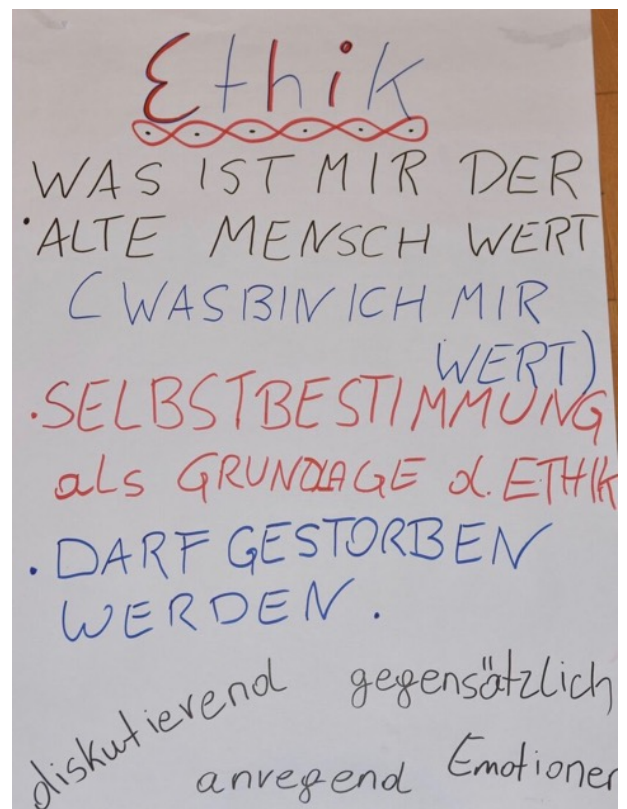 Ethik
WAS IST MIR DER
· ALTE MENSCH WERT
(WAS BIN ICH MIR
WERT)
· SELBSTBESTIMMUNG
als GRUNDLAGE d. ETHIK
· DARF GESTORBEN
WERDEN.
diskutierend gegensätzlich
anregend Emotionen